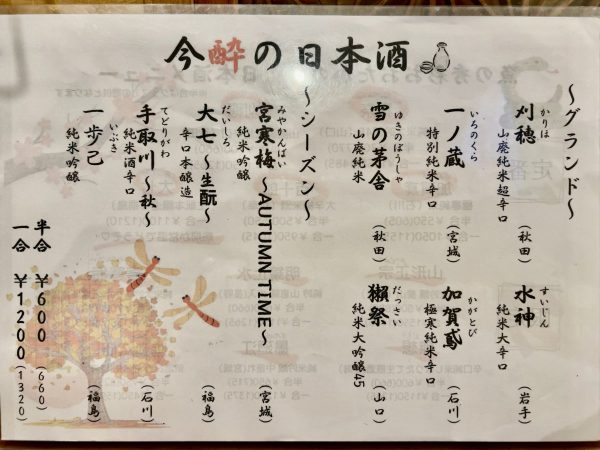 今酔の日本酒
～グランド～
かりほ
刈穂
山廃純米超辛口
（秋田）
すいじん
水神
純米大辛口
（岩手）
いちのくら
一ノ蔵
特別純米辛口
（宮城）
かがとび
加賀鳶
極寒純米辛口
（石川）
ゆきのぼうしゃ
雪の茅舎
山廃純米
（秋田）
だっさい
獺祭
純米大吟醸45
（山口）
～シーズン～
みやかんばい
宮寒梅～AUTUMN TIME～
純米吟醸
（宮城）
だいしち
大七～生酛～
辛口本醸造
（福島）
てどりがわ
手取川～秋～
純米酒辛口
（石川）
いぶき
一歩己
純米吟醸
（福島）
半合 ￥600（660）
一合 ￥1200（1320）